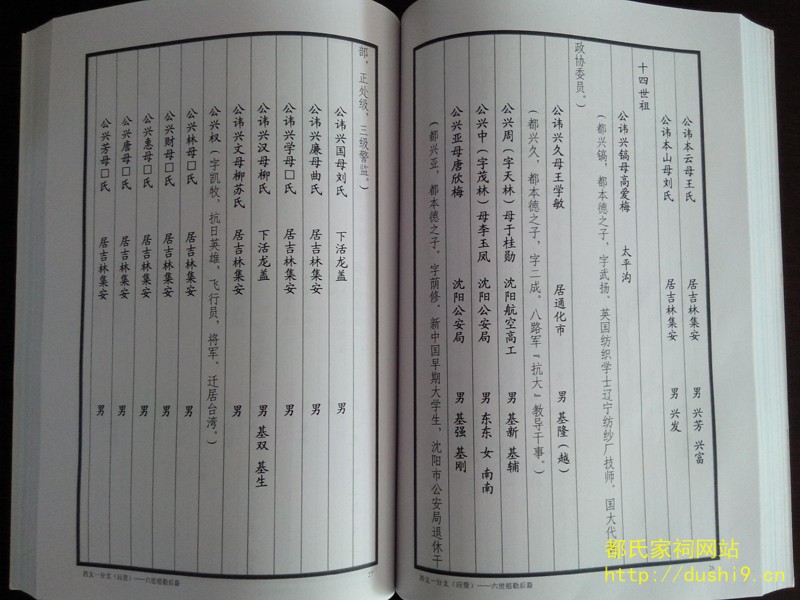 公讳本云母王氏 居吉林集安 男 兴芳 兴富
公讳本山母刘氏 居吉林集安 男 兴发
十四世祖
公讳兴镐母高爱梅 太平沟
（都兴镐，都本德之子，字武扬，英国纺织学士辽宁纺纱厂技师，国大代
政协委员。）
公讳兴久母王学敏 居通化市 男 基隆（越）
（都兴久，都本德之子，字二成。八路军“抗大”教导干事。）
公兴周（字天林）母于桂勋 沈阳航空高工 男 基新 基辅
公兴中（字茂林）母李玉凤 沈阳公安局 男 东东 女 南南
公兴亚母唐欣梅 沈阳公安局 男 基强 基刚
（都兴亚，都本德之子。字荫修。新中国早期大学生，沈阳市公安局退休干
部，正处级，三级警监。）
公讳兴国母刘氏 下活龙盖 男
公讳兴廉母曲氏 居吉林集安 男
公讳兴学母口氏 居吉林集安 男
公讳兴汉母柳氏 下活龙盖 男 基双 基生
公讳兴文母柳苏氏 居吉林集安 男
公兴权（字凯牧，抗日英雄，飞行员，将军。迁居台湾。）
公兴林母口氏 居吉林集安 男
公兴财母口氏 居吉林集安 男
公兴惠母口氏 居吉林集安 男
公兴唐母口氏 居吉林集安 男
公兴芳母口氏 居吉林集安 男
西支一分支（运登）——六世祖勤后裔
西支一分支（运登）——六世祖勤后裔
都氏家祠网站
http://dushi9.cn